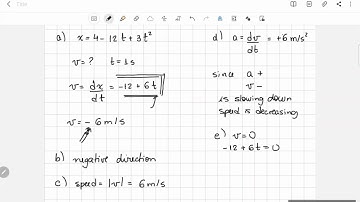 a) x = 4 - 12 t + 3 t²
v = ? t = 1 s
v = dx/dt = -12 + 6 t
v = - 6 m/s
b) negative direction
c) speed = |v| = 6 m/s
d) a = dv/dt = +6 m/s²
since a +
v -
is slowing down
speed is decreasing
e) v = 0
-12 + 6t = 0